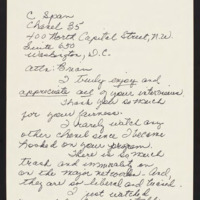 C Span
Chanel 35
400 North Capital Street, N.W.
Suite 650
Washington, D.C.
Attn: Brian
I truly enjoy and
appreciate all of your interviews
Thank you so much
for your fairness.
I rarely watch any
other chanel since I became
hooked on your program.
There is so much
trash and immorality on
on the major networks. And,
they are so liberal and biased.
I just watched